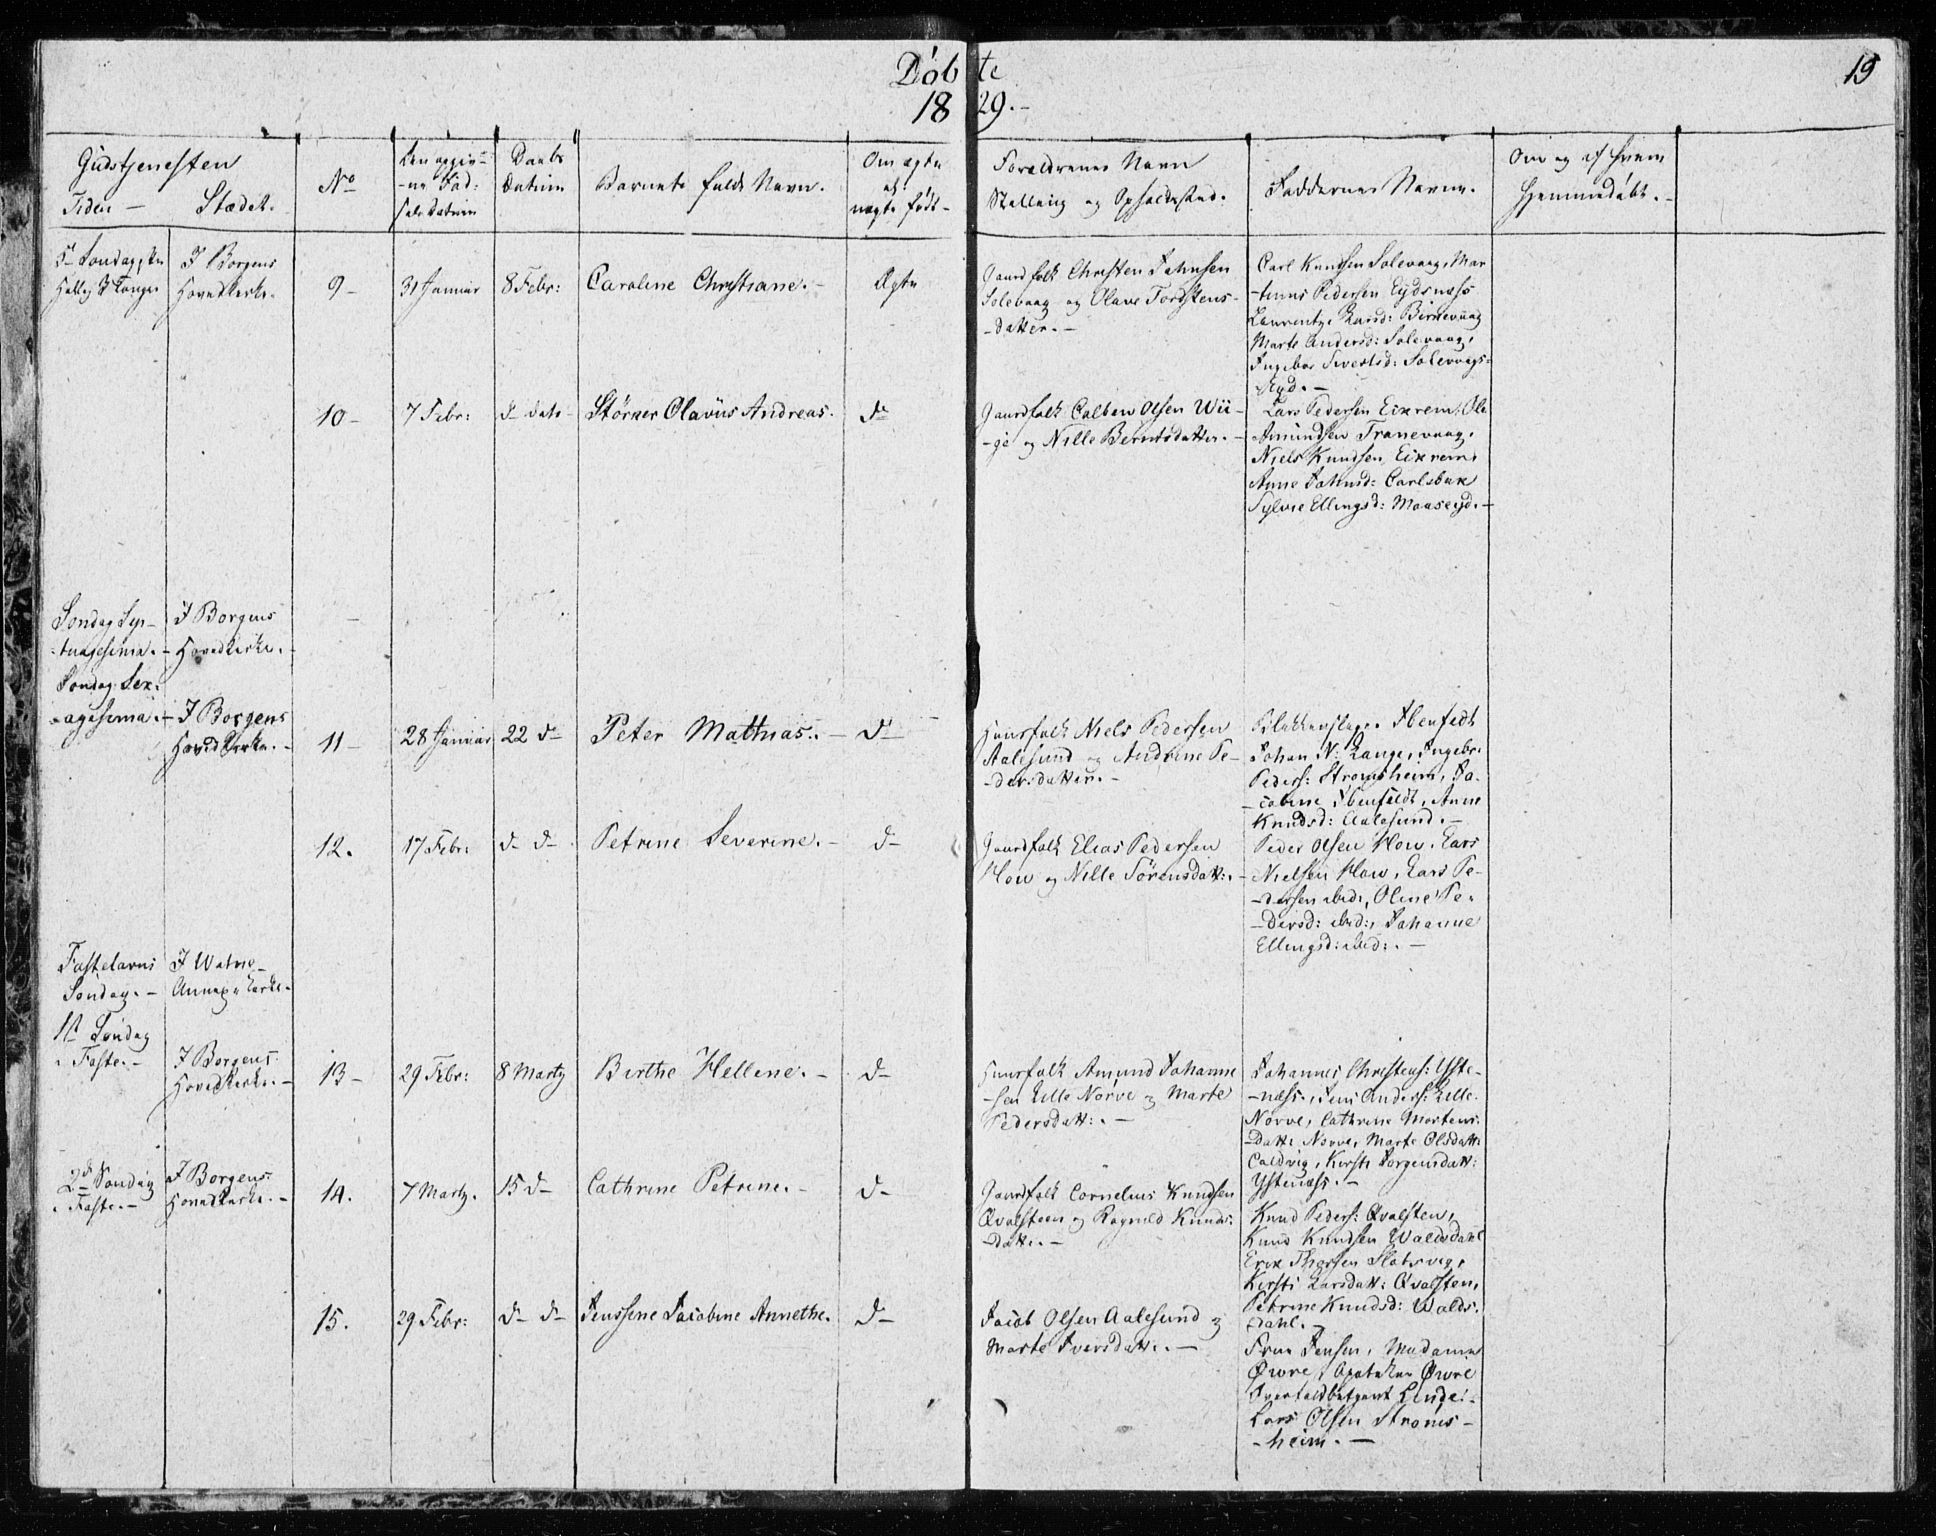 Døbte
1829.-
19
Gudstjenesten
Tiden - Stædet.
No
Den opgiv-
-ne Fød-
sels Datum
Daabs
Datum
Barnets fulde Navn.
Om ægte
el.
uægte født-
Forældrenes Navn
Stilling og Opholdsted.
Faddernes Navne.
Om og af hvem
hjemmedøbt.-
5te Søndag efter
Hellig 3 Konger
I Borgens
Hovedkirke.
9-
31 Januar
8 Febr:
Caroline Christiane.-
Ægte
Gaardfolk Christen Johnsen
Solevaag og Olave Tordstens-
-datter.-
Carl Knudsen Solevaag, Mar
-tinus Pedersen Eydsnæss
Laurentze Larsd: Birnevaag
Marte Andersd: Solevaag,
Ingebor Sivertsd: Solevogs-
Eyd.-
10-
7 Febr:
do dato
Størker Olavus Andreas.
do
Gaardfolk Colben Olsen Wii-
-ge og Nille Berntsdatter.-
Lars Pedersen Eixrem, Ole
Amundsen Tranevaag,
Niels Knudsen Eixrem,
Anne Johnsd: Carlsbak
Sylvie Ellingsd: Maaseyd.-
Søndag Sep-
-tuagesima.-
I Borgens
Hovedkirke.
Søndag Sex-
-agesima.-
I Borgens
Hovedkirke.-
11-
28 Januar
22 do
Peter Mathias.-
do
Huusfolk Niels Pedersen
Aalesund og Andrine Pe-
-dersdatter.-
Ibenfeldt
Johan N: Lange, Ingebr:
Peders: Strømsheim, Ja-
-cobine Ibenfeldt, Anne
Knudsd: Aalesund.-
12.
17 Febr:
do do
Petrine Severine.-
do
Gaardfolk Elias Pedersen
How og Nille Sørensdatt:.-
Peder Olsen How, Lars
Nielsen How, Lars Pe-
-dersen ibid:, Oline Pe-
-dersd: ibid:, Johanne
Ellingsd: ibid:.-
Fastelavns
Søndag.-
I Watne
Annexkirke.
1ste Søndag
i Faste.-
I Borgens
Hovedkirke.-
13-
29 Febr:
8 Martz
Birthe Hellene.-
do
Huusfolk Amund Johanne
-sen Lille Nørve og Marte
Pedersdatt:.-
Johannes Christens: Yste-
-næss, Jens Anders: Lille
Nørve, Cathrine Mortens-
-datt: Nørve, Marte Olsdatt:
Caldvig, Kirsti Jørgensdatt:
Ystenæss.-
2den Søndag
i Faste.-
I Borgens
Hovedkirke.-
14.
7 Martz.
15 do
Cathrine Petrine.-
do
Gaardfolk Cornelius Knudsen
Qvalsteen og Ragnild Knuds-
-datt:.-
Knud Peders: Qvalsten,
Knud Knudsen Waldsdahl
Erik Thorsen Slotsvig,
Kirsti Larsdatt: Qvalsten,
Petrine Knudsd: Walds-
-dahl.-
15.
29 Febr:
do do
Jenssine Jacobine Annethe.
do
Jacob Olsen Aalesund og
Marte Iversdatt:.-
Frue Jensen, Madame
Øwre, Apotheker Øwre
Lars Olsen Strøms-
-heim.-